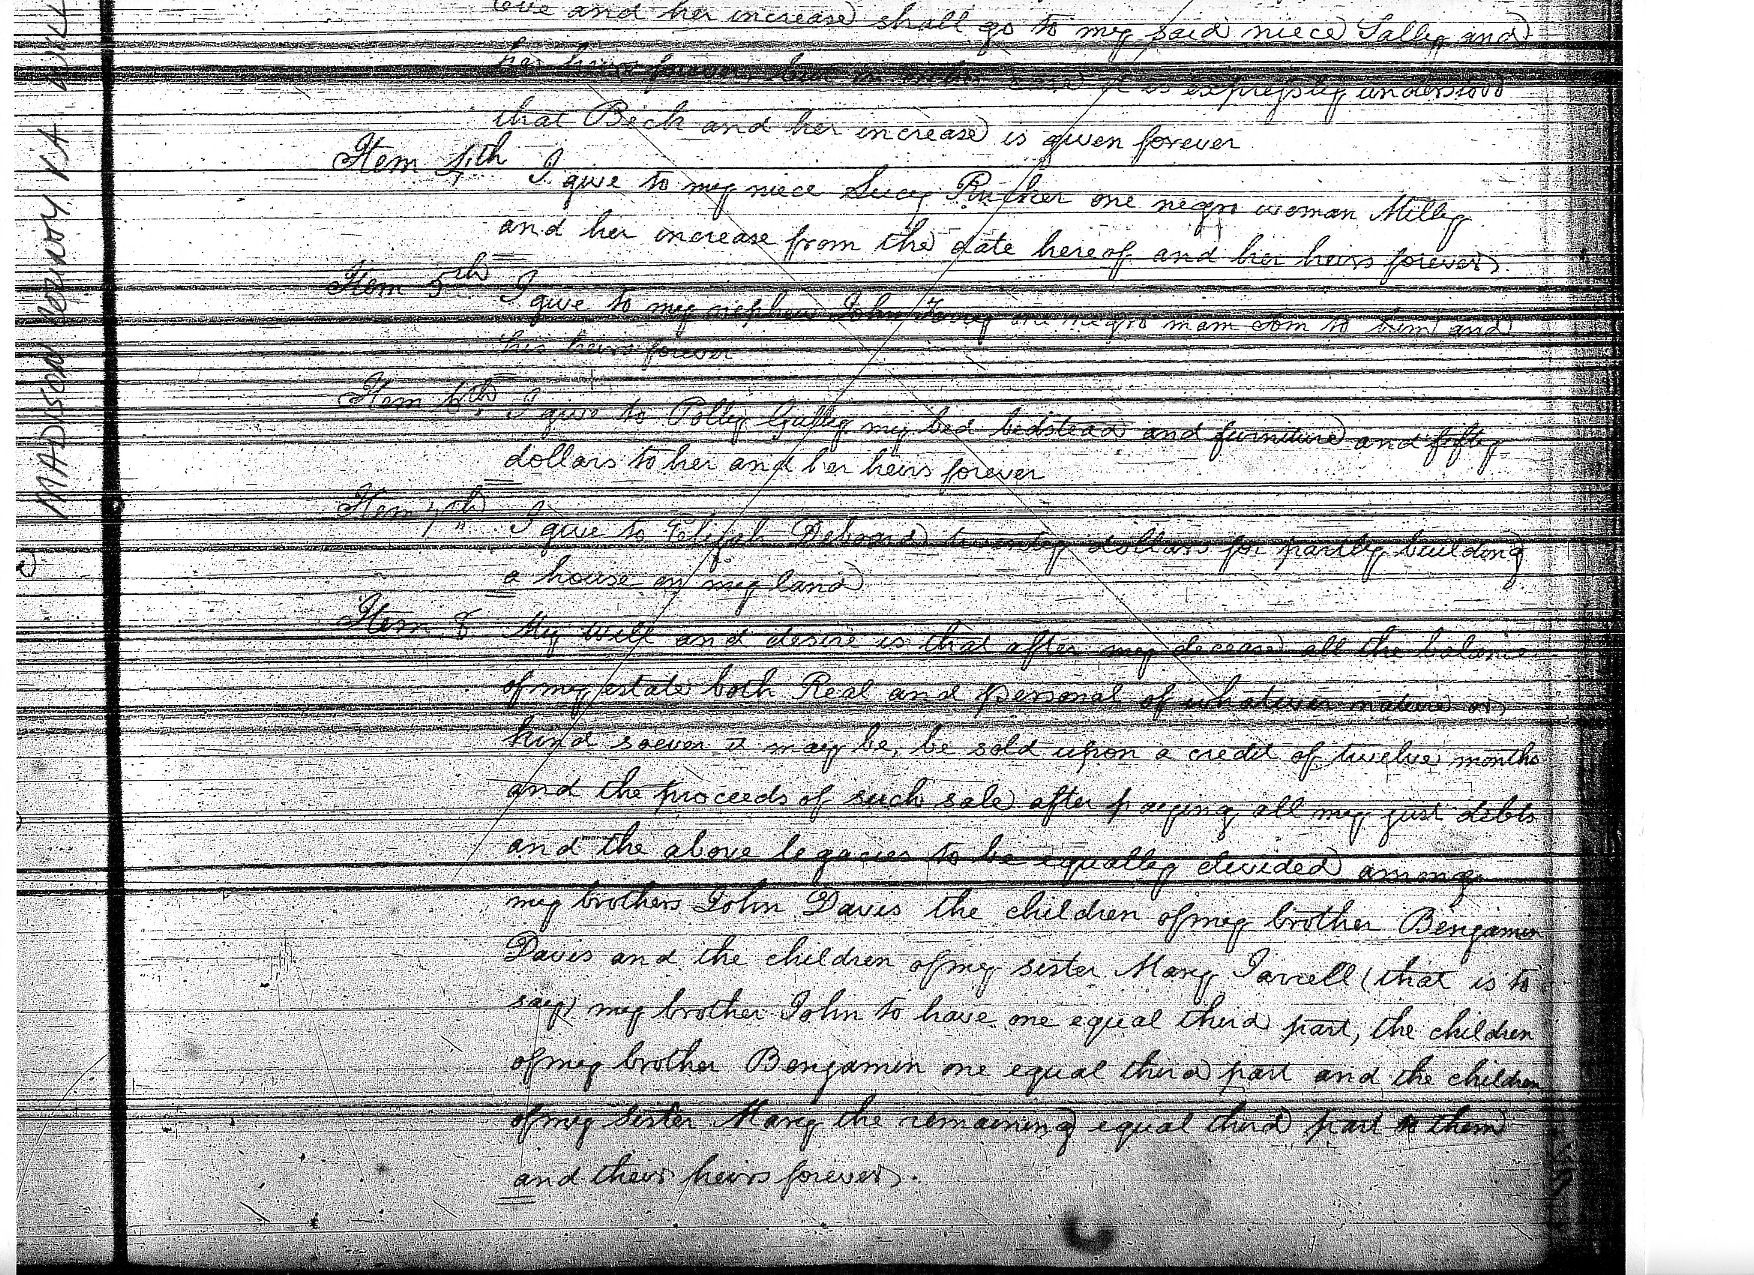 and her increase shall go to my said niece Sally and
her heirs forever, but in either case it is expressly understood
that Beck and her increase is given forever
Item 4th I give to my niece Lucy Rucker one negro woman Milly
and her increase from the date hereof and her heirs forever.
Item 5th I give to my nephew John one negro man to him and
his heirs forever
Item 6th I give to Polly my bed bedstead and furniture and fifty
dollars to her and her heirs forever
Item 7th I give to Elijah Deboard twenty dollars for partly building
a house on my land
Item 8 My will and desire is that after my decease all the balance
of my estate both Real and personal of whatever nature or
kind soever it may be, be sold upon a credit of twelve months
and the proceeds of such sale after paying all my just debts
and the above legacies to be equally divided among
my brothers John Davis the children of my brother Benjamin
Davis and the children of my sister Mary (that is to
say) my brother John to have one equal third part, the children
of my brother Benjamin one equal third part and the children
of my sister Mary the remaining equal third part to them
and their heirs forever.
MADISON COUNTY VA WILL